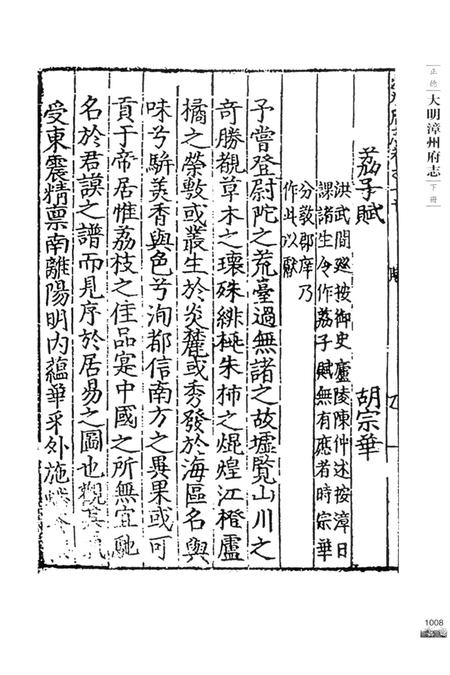 正德 大明漳州府志 下冊
荔子賦 胡宗華
洪武間巡按御史廬陵陳仲述按漳日
課諸生令作荔子賦無有應者時宗華
分敎郡庠乃
作此以獻
予嘗登尉陀之荒臺過無諸之故墟覽山川之
奇勝觀草木之瓌殊緋桃朱柿之焜煌江橙盧
橘之榮敷或叢生於炎麓或秀發於海區名與
味兮駢美香與色兮洵都信南方之異果或可
貢于帝居惟荔枝之佳品寔中國之所無宜馳
名於君謨之譜而見序於居易之圖也觀其
受東震精禀南離陽明內蘊華采外施
1008